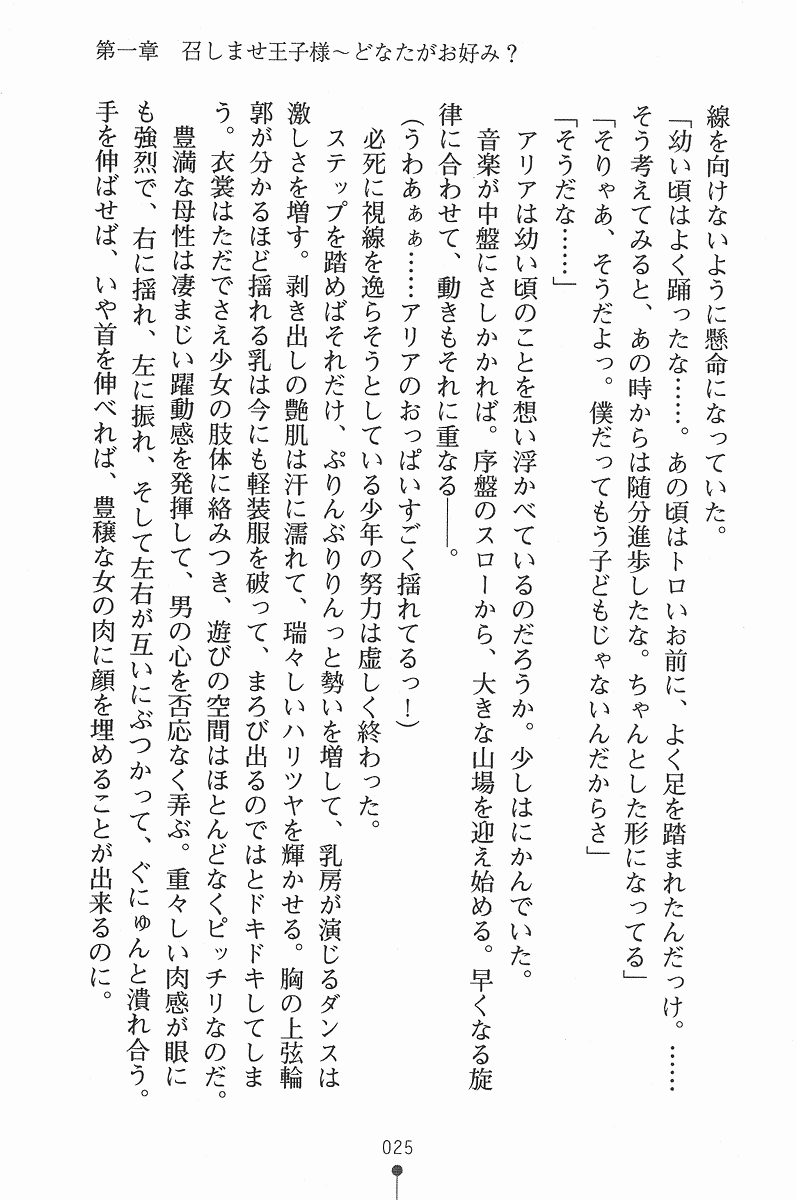 第一章　召しませ王子様～どなたがお好み？
線を向けないように懸命になっていた。
「幼い頃はよく踊ったな……。あの頃はトロいお前に、よく足を踏まれたんだっけ。……
そう考えてみると、あの時からは随分進歩したな。ちゃんとした形になってる」
「そりゃあ、そうだよっ。僕だってもう子どもじゃないんだからさ」
「そうだな……」
　アリアは幼い頃のことを想い浮かべているのだろうか。少しはにかんでいた。
　音楽が中盤にさしかかれば。序盤のスローから、大きな山場を迎え始める。早くなる旋
律に合わせて、動きもそれに重なる――。
（うわあぁぁ……アリアのおっぱいすごく揺れてるっ！）
　必死に視線を逸らそうとしている少年の努力は虚しく終わった。
　ステップを踏めばそれだけ、ぷりんぷりりんっと勢いを増して、乳房が演じるダンスは
激しさを増す。剥き出しの艶肌は汗に濡れて、瑞々しいハリツヤを輝かせる。胸の上弦輪
郭が分かるほど揺れる乳は今にも軽装服を破って、まろび出るのではとドキドキしてしま
う。衣裳はただでさえ少女の肢体に絡みつき、遊びの空間はほとんどなくピッチリなのだ。
　豊満な母性は凄まじい躍動感を発揮して、男の心を否応なく弄ぶ。重々しい肉感が眼に
も強烈で、右に揺れ、左に振れ、そして左右が互いにぶつかって、ぐにゅんと潰れ合う。
手を伸ばせば、いや首を伸べれば、豊穣な女の肉に顔を埋めることが出来るのに。
025